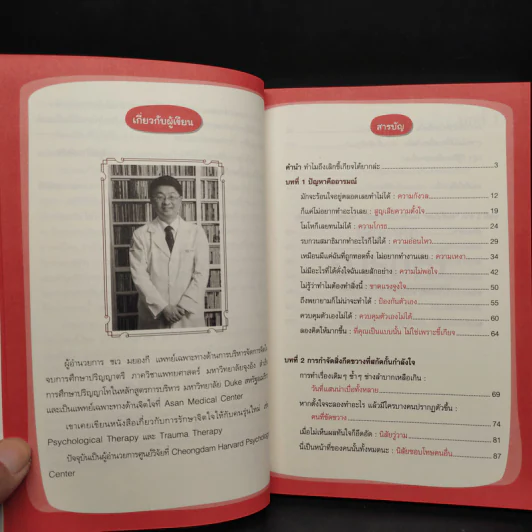 เกี่ยวกับผู้เขียน
ผู้อำนวยการ ชเว มยองกี แพทย์เฉพาะทางด้านการบริหารจัดการจิตใจ
จบการศึกษาปริญญาตรี ภาควิชาแพทยศาสตร์ มหาวิทยาลัยจุงอัง
การศึกษาปริญญาโทในหลักสูตรการบริหาร มหาวิทยาลัย Duke สหรัฐอเมริกา
และเป็นแพทย์เฉพาะทางด้านจิตใจที่ Asan Medical Center
เขาเคยเขียนหนังสือเกี่ยวกับการรักษาจิตใจให้กับคนรุ่นใหม่ เช่น
Psychological Therapy และ Trauma Therapy
ปัจจุบันเป็นผู้อำนวยการศูนย์วิจัยที่ Cheongdam Harvard Psychology
Center
สารบัญ
คำนำ ทำไมถึงเลิกขี้เกียจได้ยากล่ะ 3
บทที่ 1 ปัญหาคืออารมณ์
มักจะร้อนใจอยู่ตลอดเลยทำไม่ได้ : ความกังวล 12
ก็แค่ไม่อยากทำอะไรเลย : สูญเสียความตั้งใจ 19
โมโหก็เลยทนไม่ได้ : ความโกรธ 24
รบกวนสมาธิมากทำอะไรก็ไม่ได้ : ความอ่อนไหว 29
เหมือนมีแค่ฉันที่ถูกทอดทิ้ง ไม่อยากทำงานเลย : ความเหงา 34
ไม่มีอะไรที่ได้ดั่งใจฉันเลยสักอย่าง : ความไม่พอใจ 42
ไม่รู้ว่าทำไมต้องทำสิ่งนี้ : ขาดแรงจูงใจ 50
ถึงพยายามก็ไม่น่าจะทำได้ : ป้องกันตัวเอง 55
ควบคุมตัวเองไม่ได้ : ควบคุมตัวเองไม่ได้ 60
ลองคิดให้มากขึ้น : ที่คุณเป็นแบบนั้น ไม่ใช่เพราะขี้เกียจ 64
บทที่ 2 การกำจัดสิ่งกีดขวางที่สกัดกั้นกำลังใจ
การทำเรื่องเดิมๆ ซ้ำๆ ช่างลำบากเหลือเกิน :
วันที่แสนน่าเบื่อทั้งหลาย 69
หากตั้งใจจะลองทำอะไร แล้วมีใครบางคนปรากฏตัวขึ้น :
คนที่ขัดขวาง 74
เมื่อไม่เห็นผลทันใจก็อึดอัด : นิสัยวู่วาม 81
นี่เป็นหน้าที่ของคนนั้นทั้งหมดนะ : นิสัยชอบโทษคนอื่น 87